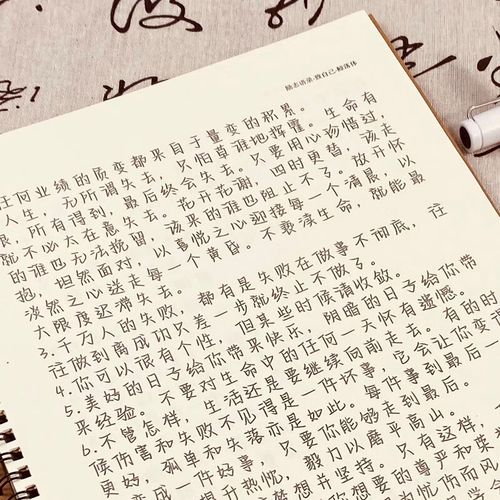 励志语录·致自己·鲸落体
任何业绩的质变都来自于量变的积累。
人生，无所谓失去，只怕草谁地挥霍。生命有
限，所有得到，最后终会失去。只要用心珍惜过，
就不必太在意失去。花开花谢，四时更替，该走
的谁也无法挽留，该来的谁也阻止不了。放开怀
抱，坦然面对，以喜悦之心迎接每一个清晨，以
淡然之心送走每一个黄昏。不亵渎生命，就能最
大限度迟滞失去。
3.千万人的失败，都有是失败在做事不彻底，往
往做到离成功只差一步就终止不做了。
4.你可以很有个性，但某些时候请收敛。
5.美好的日子给你带来快乐，阴暗的日子给你带
来经验。不要对生命中的任何一天怀有遗憾。
6.不管怎样，生活还是要继续向前走去。有的时
候伤害和失败不见得是一件坏事，它会让你变
更好，孤单和失落亦是如此。每件事到最后一
变成一件好事，只要你能够走到最后。
升热忱，毅力以磨平高山。
想并坚持。只有这样
你想要的尊严和荣
伤而风